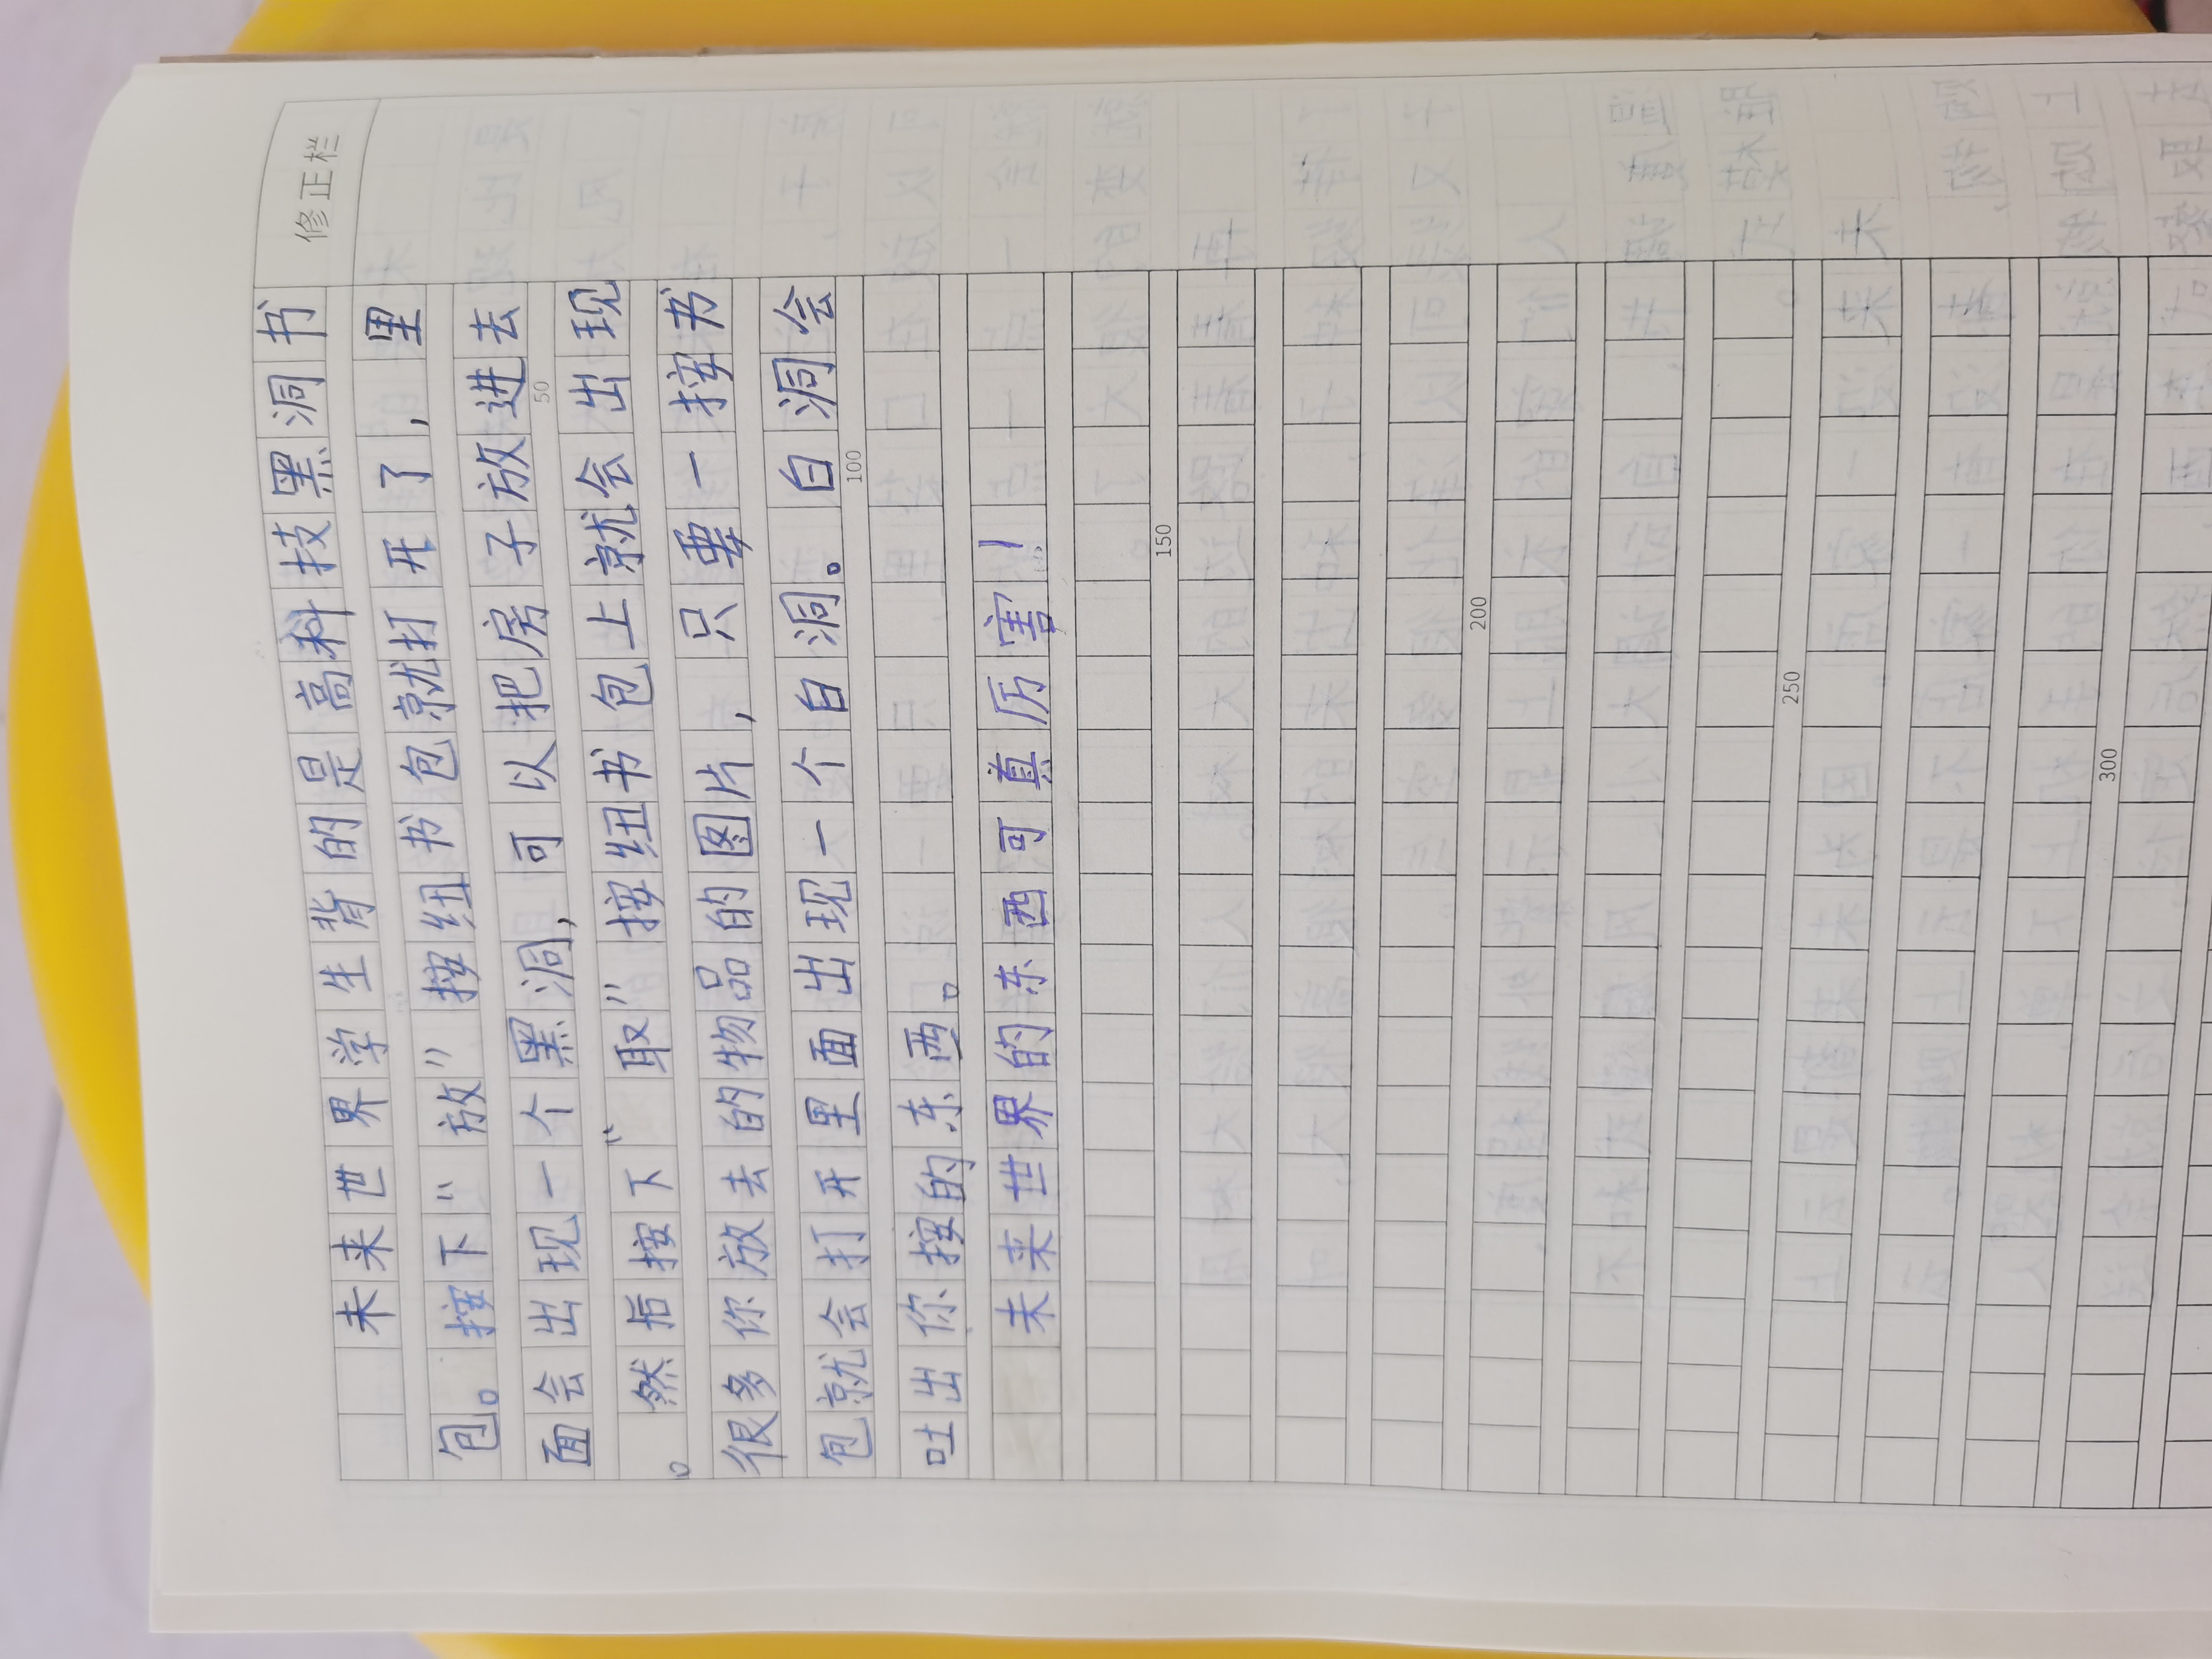 修正栏
未来世界学生背的是高科技黑洞书
包。按下“放”按纽书包就打开了，里
面会出现一个黑洞，可以把房子放进去
50
。然后按下“取”按纽书包上就会出现
很多你放去的物品的图片，只要一按书
包就会打开里面出现一个白洞。白洞会
100
吐出你按的东西。
未来世界的东西可真厉害！
150
200
250
300